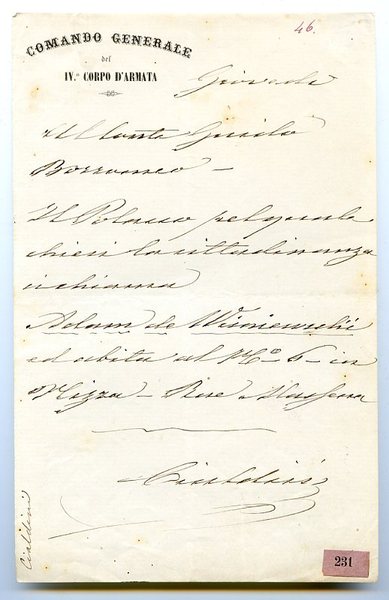 46.
COMANDO GENERALE
del
IV.° CORPO D'ARMATA
Giovedi
Al Conte Guido
Borromeo —
Il Polacco pel quale
chiesi la cittadinanza
si chiama
Adam de Wisniewski
ed abita al N.° 6 - in
Nizza - Rue Massena
Cialdini
Cialdini
231